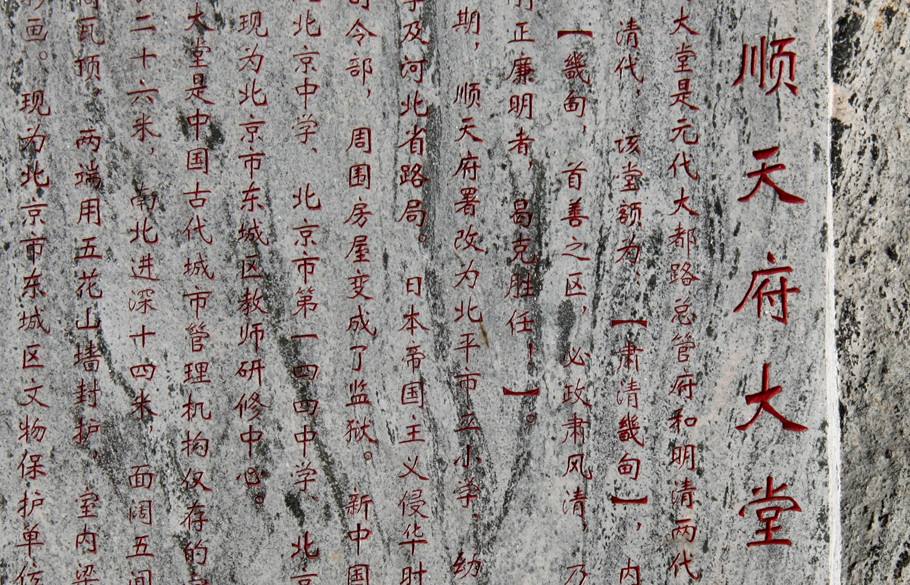 顺天府大堂
大堂是元代大都路总管府和明清两代
清代，该堂额为，【肃清畿甸】，内
【畿甸，首善之区，必政肃风清，乃
正廉明者，曷克胜任！】。
期，顺天府署改为北平市立小学。幼
及河北省路局。日本帝国主义侵华时
令部，周围房屋变成了监狱。新中国
北京中学、北京市第一四四中学、北京
现为北京市东城区教师研修中心。
大堂是中国古代城市管理机构仅存的
二十六米，南北进深十四米，面阔五间
瓦顶，两端用五花山墙封护，室内梁
画。现为北京市东城区文物保护单位